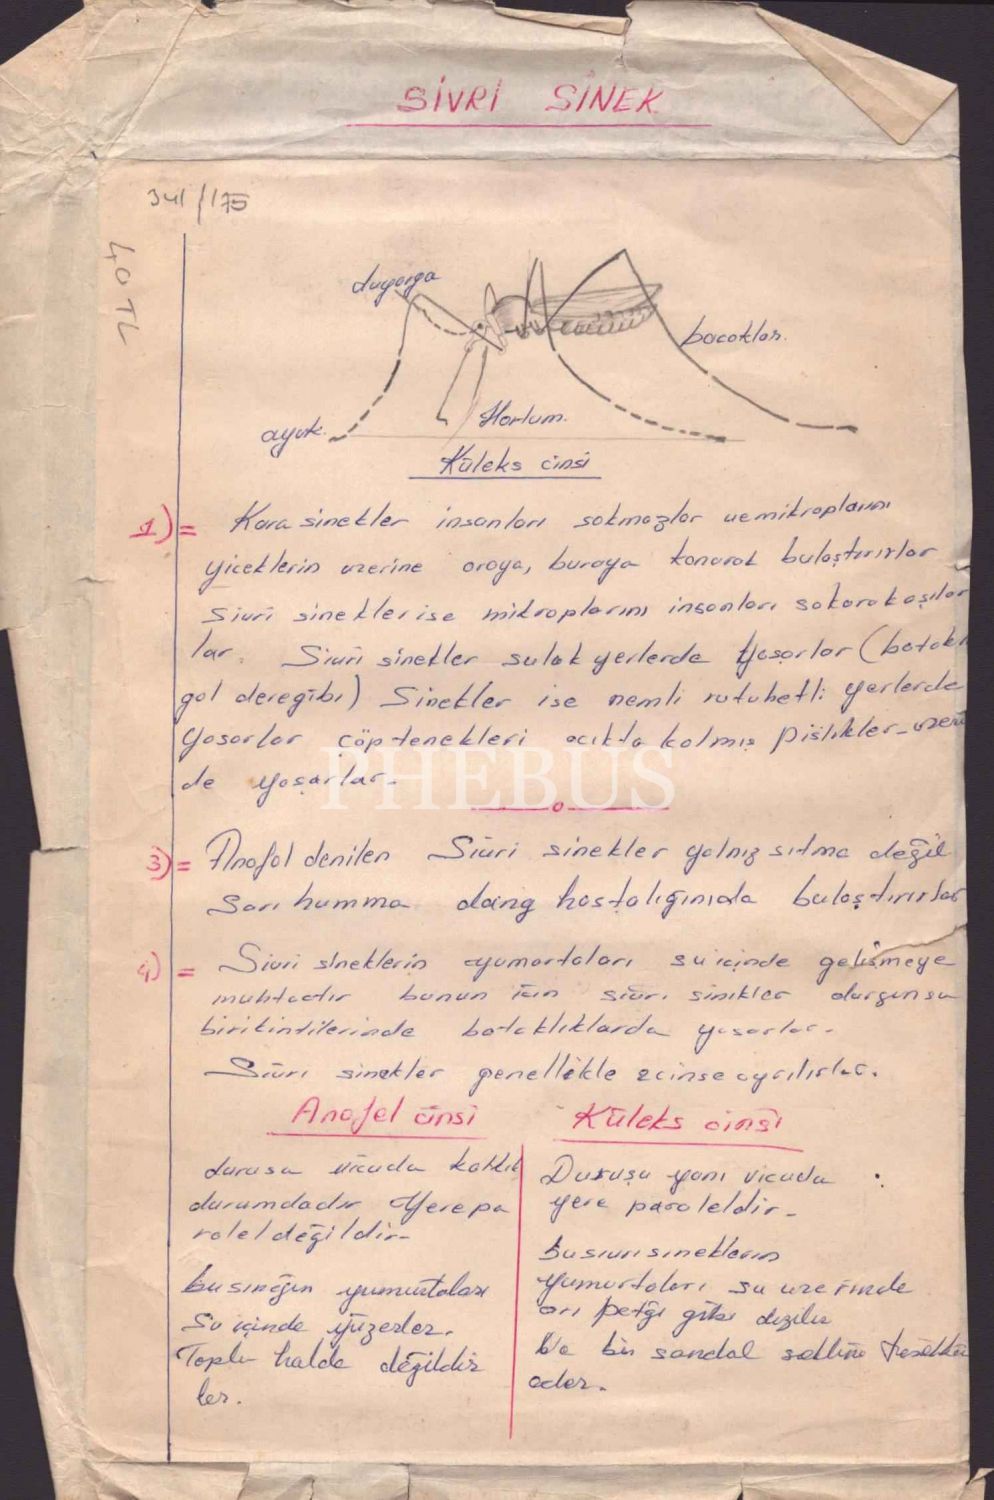 SİVRİ SİNEK
341/175
40 TL
duyarga
bacaklar.
ayak.
Hortum.
Küleks cinsi
1) = Kara sinekler insanları sokmazlar ve mikroplarını
yiceklerin üzerine oraya, buraya konarak bulaştırırlar
Sivri sinekler ise mikroplarını insanları sokarak aşılar
lar. Sivri sinekler sulak yerlerde yaşarlar (batak
göl dere gibi) Sinekler ise nemli rutubetli yerlerde
yaşarlar çöp tenekleri açıkta kalmış pislikler üzerin
de yaşarlar.
PHEBUS
3) = Anofol denilen Sivri sinekler yalnız sıtma değil
Sarı humma dang hastalığınıda bulaştırırlar
4) = Sivri sineklerin yumurtaları su içinde gelişmeye
muhtactır bunun için sivri sinikler durgun su
birikintilerinde bataklıklarda yaşarlar.
Sivri sinekler genellikle 2 cinse ayrılırlar.
Anofel cinsi
durusu vücuda
durumdadır Yere pa
ralel değildir.
bu sineğin yumurtaları
Su içinde yüzerler.
Toplu halde değildir
ler.
Küleks cinsi
Duruşu yani vicudu
yere paraleldir.
bu sivri sineklerin
yumurtaları su üzerinde
arı peteği gibi dizilir
Ve bir sandal şeklini teşekkül
eder.